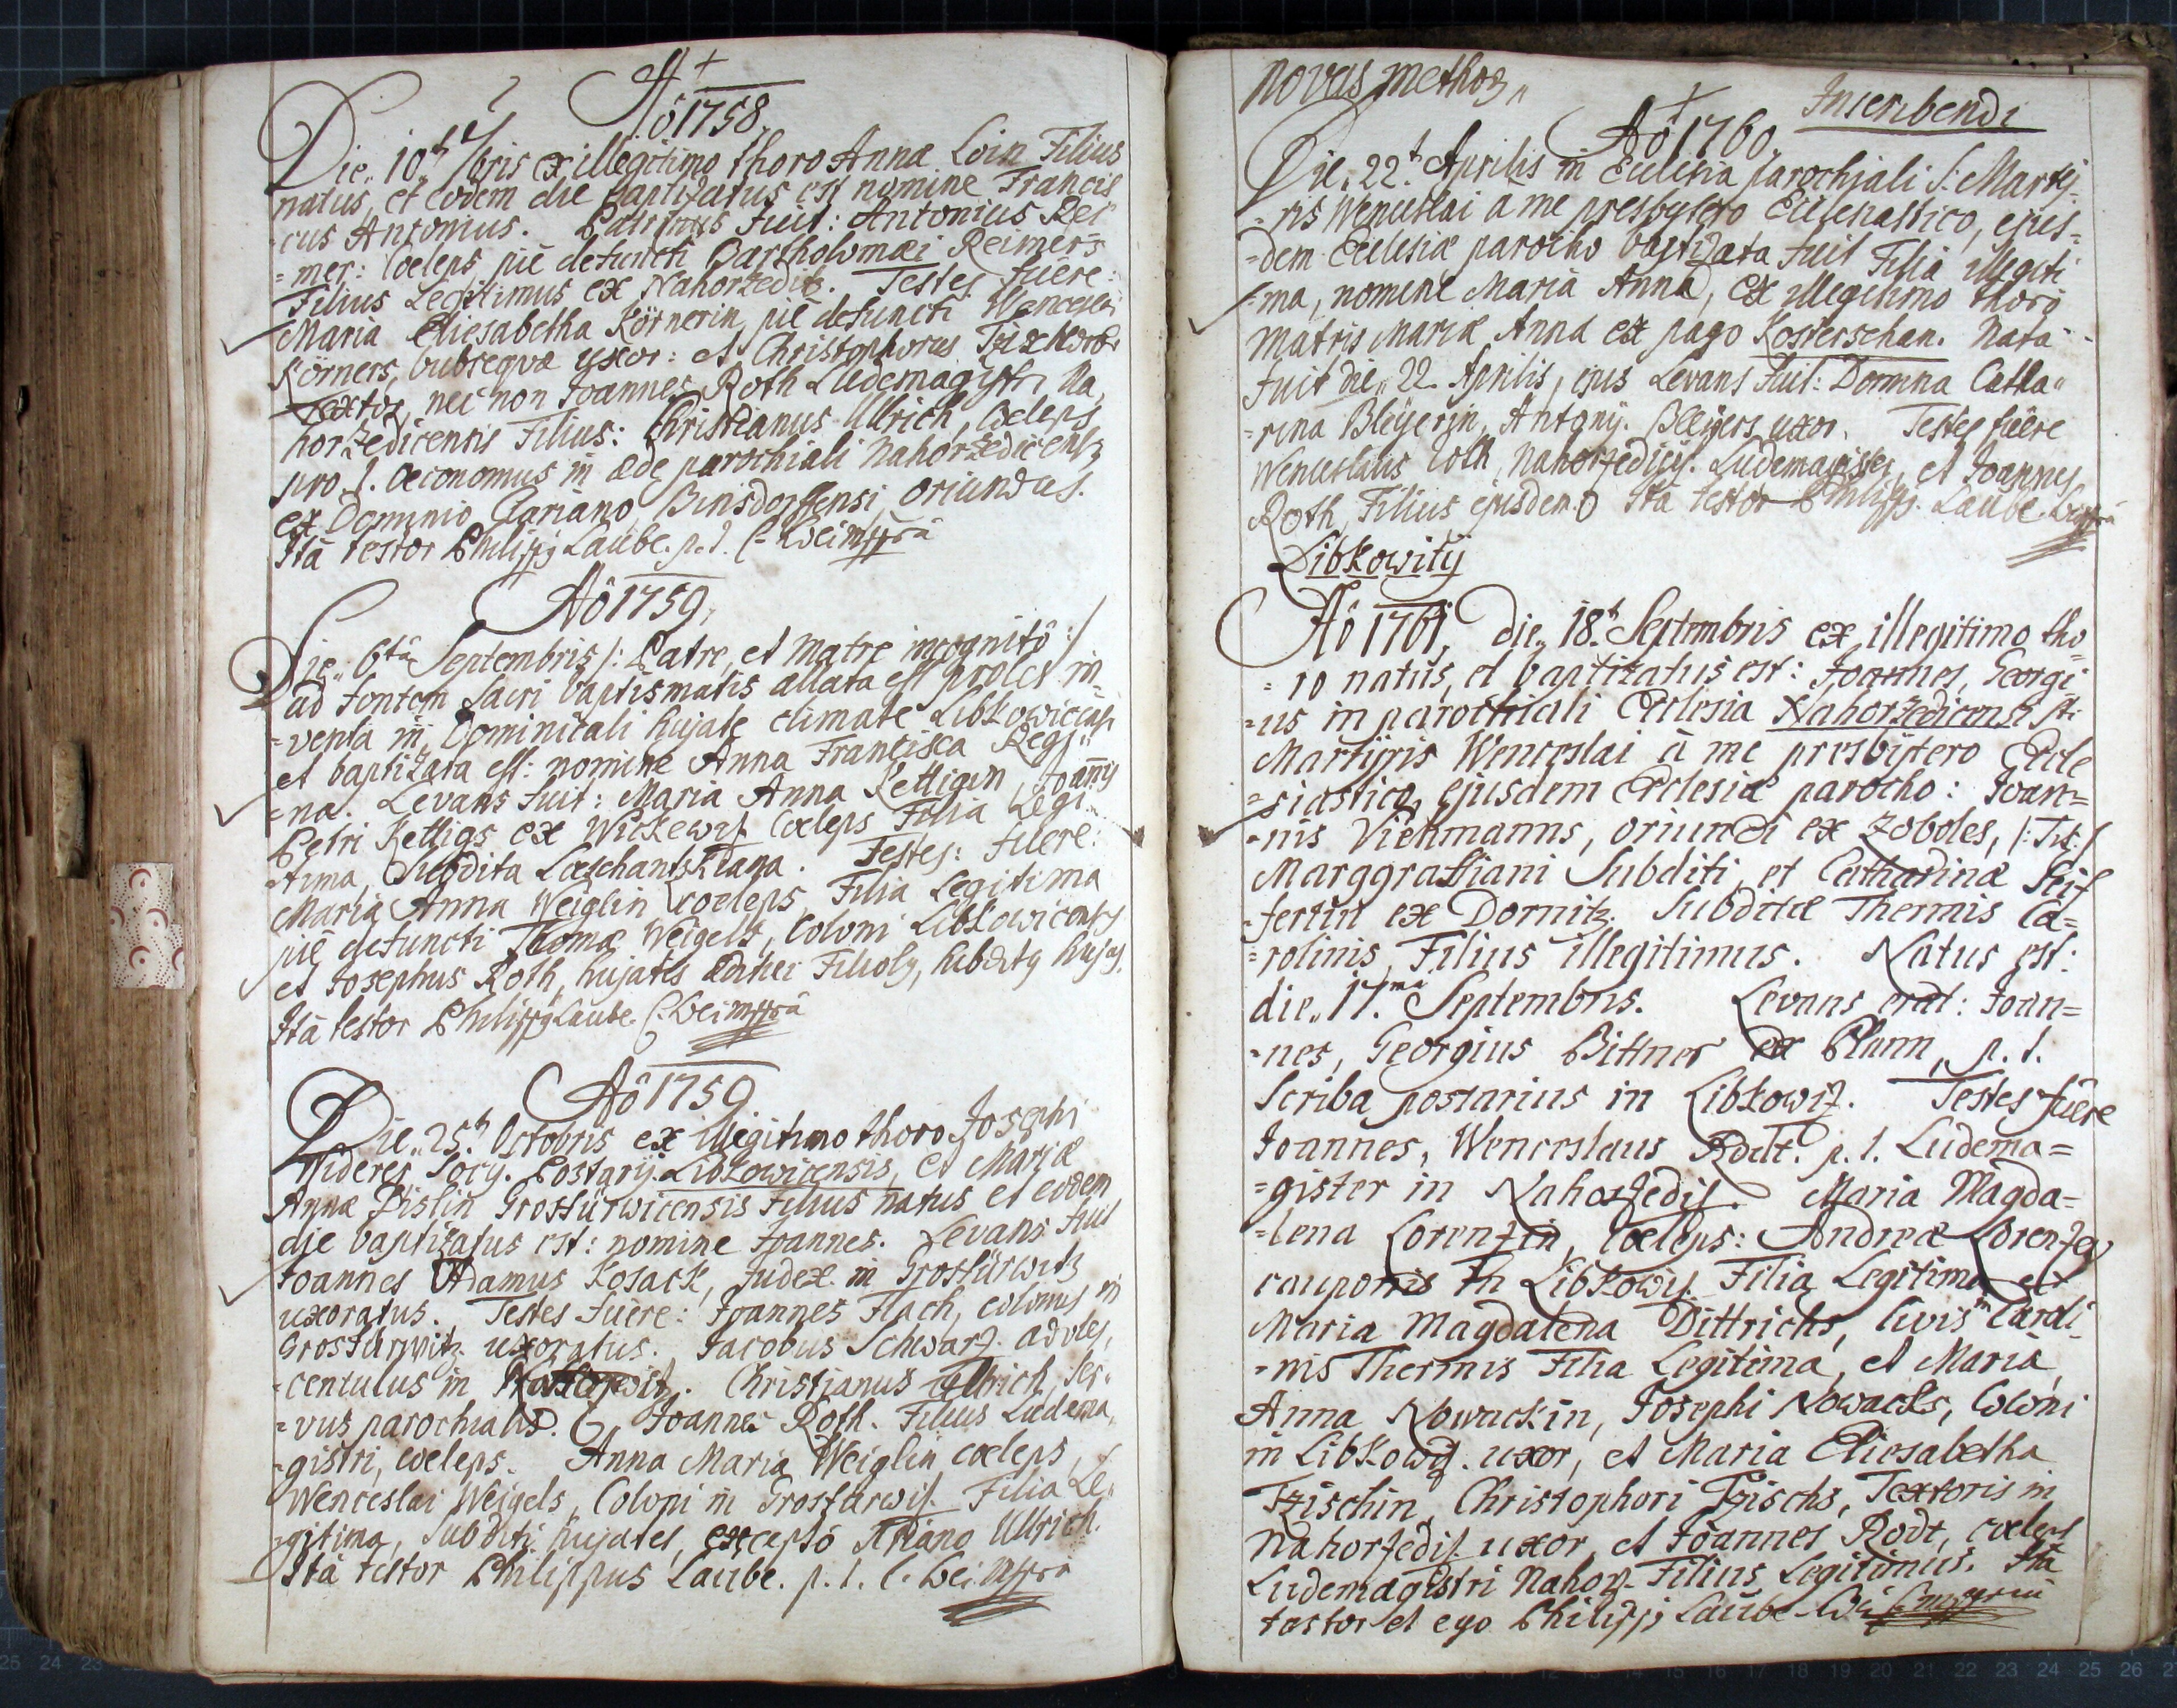 Aô 1758.
Die 10 7bris ex illegitimo thoro Annæ Loin Filius
natus, et eodem die baptizatus est nomine Francis
cus Antonius. Patrinus fuit: Antonius Rei
=mer: Coelebs, piè defuncti Bartholomæi Reimers
Filius Legitimus ex Nahorzeditz. Testes fuêre:
Maria Eliesabetha Körnerin, piè defuncti Wenceslai
Körners, uxor: et Christophorus
Textor, nec non Joannes Roth Ludemagistri Na
horzedicensis Filius: Christianus Ullrich, Coelebs
pro. t. Oeconomus in æde parochiali Nahorzedicensi
ex Dominio Binsdorffensi oriundus.
Ità testor Philipp Laube. p. t.
Aô 1759.
Die 6tâ Septembris /: Patre, et Matre incognitô :/
ad fontem sacri baptismatis allata est proles in
=venta in Dominicali hujate climate Libkowicensi
et baptizata est: nomine Anna Francisca Regi
=na. Levans fuit: Maria Anna Kettigin, Joannis
Petri Kettigs ex Wickewitz Coelebs Filia Legi
tima, Subdita. Testes: fuêre:
Maria Anna Weiglin coelebs, Filia Legitima
piè defuncti Thomæ Weigels, Coloni Libkowicensis
et Josephus Roth, hujatis Filiolus, subditus hujas.
Ità testor Philipp Laube
Aô 1759
Die 25 Octobris ex illegitimo thoro Josephi
Postarij Libkowicensis, et Mariæ
Annæ Pislin Grostürwicensis Filius natus et eodem
die baptizatus est: nomine Joannes. Levans fuit
Joannes Adamus Kosack, Judex in Grostürwitz
uxoratus. Testes fuêre: Joannes Flach, colonus in
Grosturwitz uxoratus. Jacobus Schwarz. adoles
=centulus in. Christianus Ullrich, ser
=vus parochialis. Joannes Roth. Filius Ludema
=gistri, coelebs. Anna Maria Weiglin coelebs,
Wenceslai Weigels, Coloni in Grosturwitz Filia Le
=gitima, Subditi hujates, exceptô Ullrich.
Ità testor Philippus Laube. p. t.
Novus Method
Inscribendi
Aô 1760.
Die 22 Aprilis in Ecclesia parochiali S: Marty
=ris Wenceslai à me presbytero Ecclesiastico, ejus=
=dem Ecclesiæ parocho baptizata fuit Filia illegiti
=ma, nomine Maria Anna, ex illegitimo thoro
Matris Mariæ Anna ex pago Kosterschan. Nata
fuit die 22. Aprilis, ejus Levans fuit: Domina Catha
=rina Bleyerin, Antonij. Bleyers uxor. Testes fuêre
Wenceslaus Roth, Nahorzedicij. Ludemagister, et Joannes
Roth, Filius ejusdem. Ità testor Philipp. Laube
Libkowitij
Aô 1761, die 18 Septembris ex illegitimo tho
=ro natus, et baptizatus est: Joannes, Georgi
=us in parochiali Ecclesia Nahorzedicensi Sti
Martyris Wenceslai à me presbytero Eccle
=siastico, ejusdem Ecclesiæ parocho: Joan=
=nis Viehmanns, oriundi ex Zoboles, /: Tit: /
Marggraffiani Subditi, et Catharinæ Seif
fertin ex Dornitz. Subditæ Thermis Ca=
=rolinis, Filius illegitimus. Natus est:
die 17.ma Septembris. Levans erat: Joan=
=nes, Georgius Bittner ex Plann, p. t.
Scriba postarius in Libkowiz. Testes fuêre
Joannes, Wenceslaus Rodt. p. t. Ludema=
=gister in Nahorzediz Maria Magda=
=lena Lorenzin, Coelebs: Andreæ Lorenzes
cauponis in Libkowiz Filia Legitima et
Maria Magdalena Dittrichs, Civis in Caroli
=nis Thermis Filia Legitima, et Maria
Anna Nowackin, Josephi Nowacks, Coloni
in Libkowiz. uxor, et Maria Eliesabetha
Tzischin, Christophori Tzischs, Textoris in
Nahorzediz uxor, et Joannes Rodt, coelebs
Ludemagistri Nahorz. Filius Legitimus. Ità
testor et ego Philipp Laube